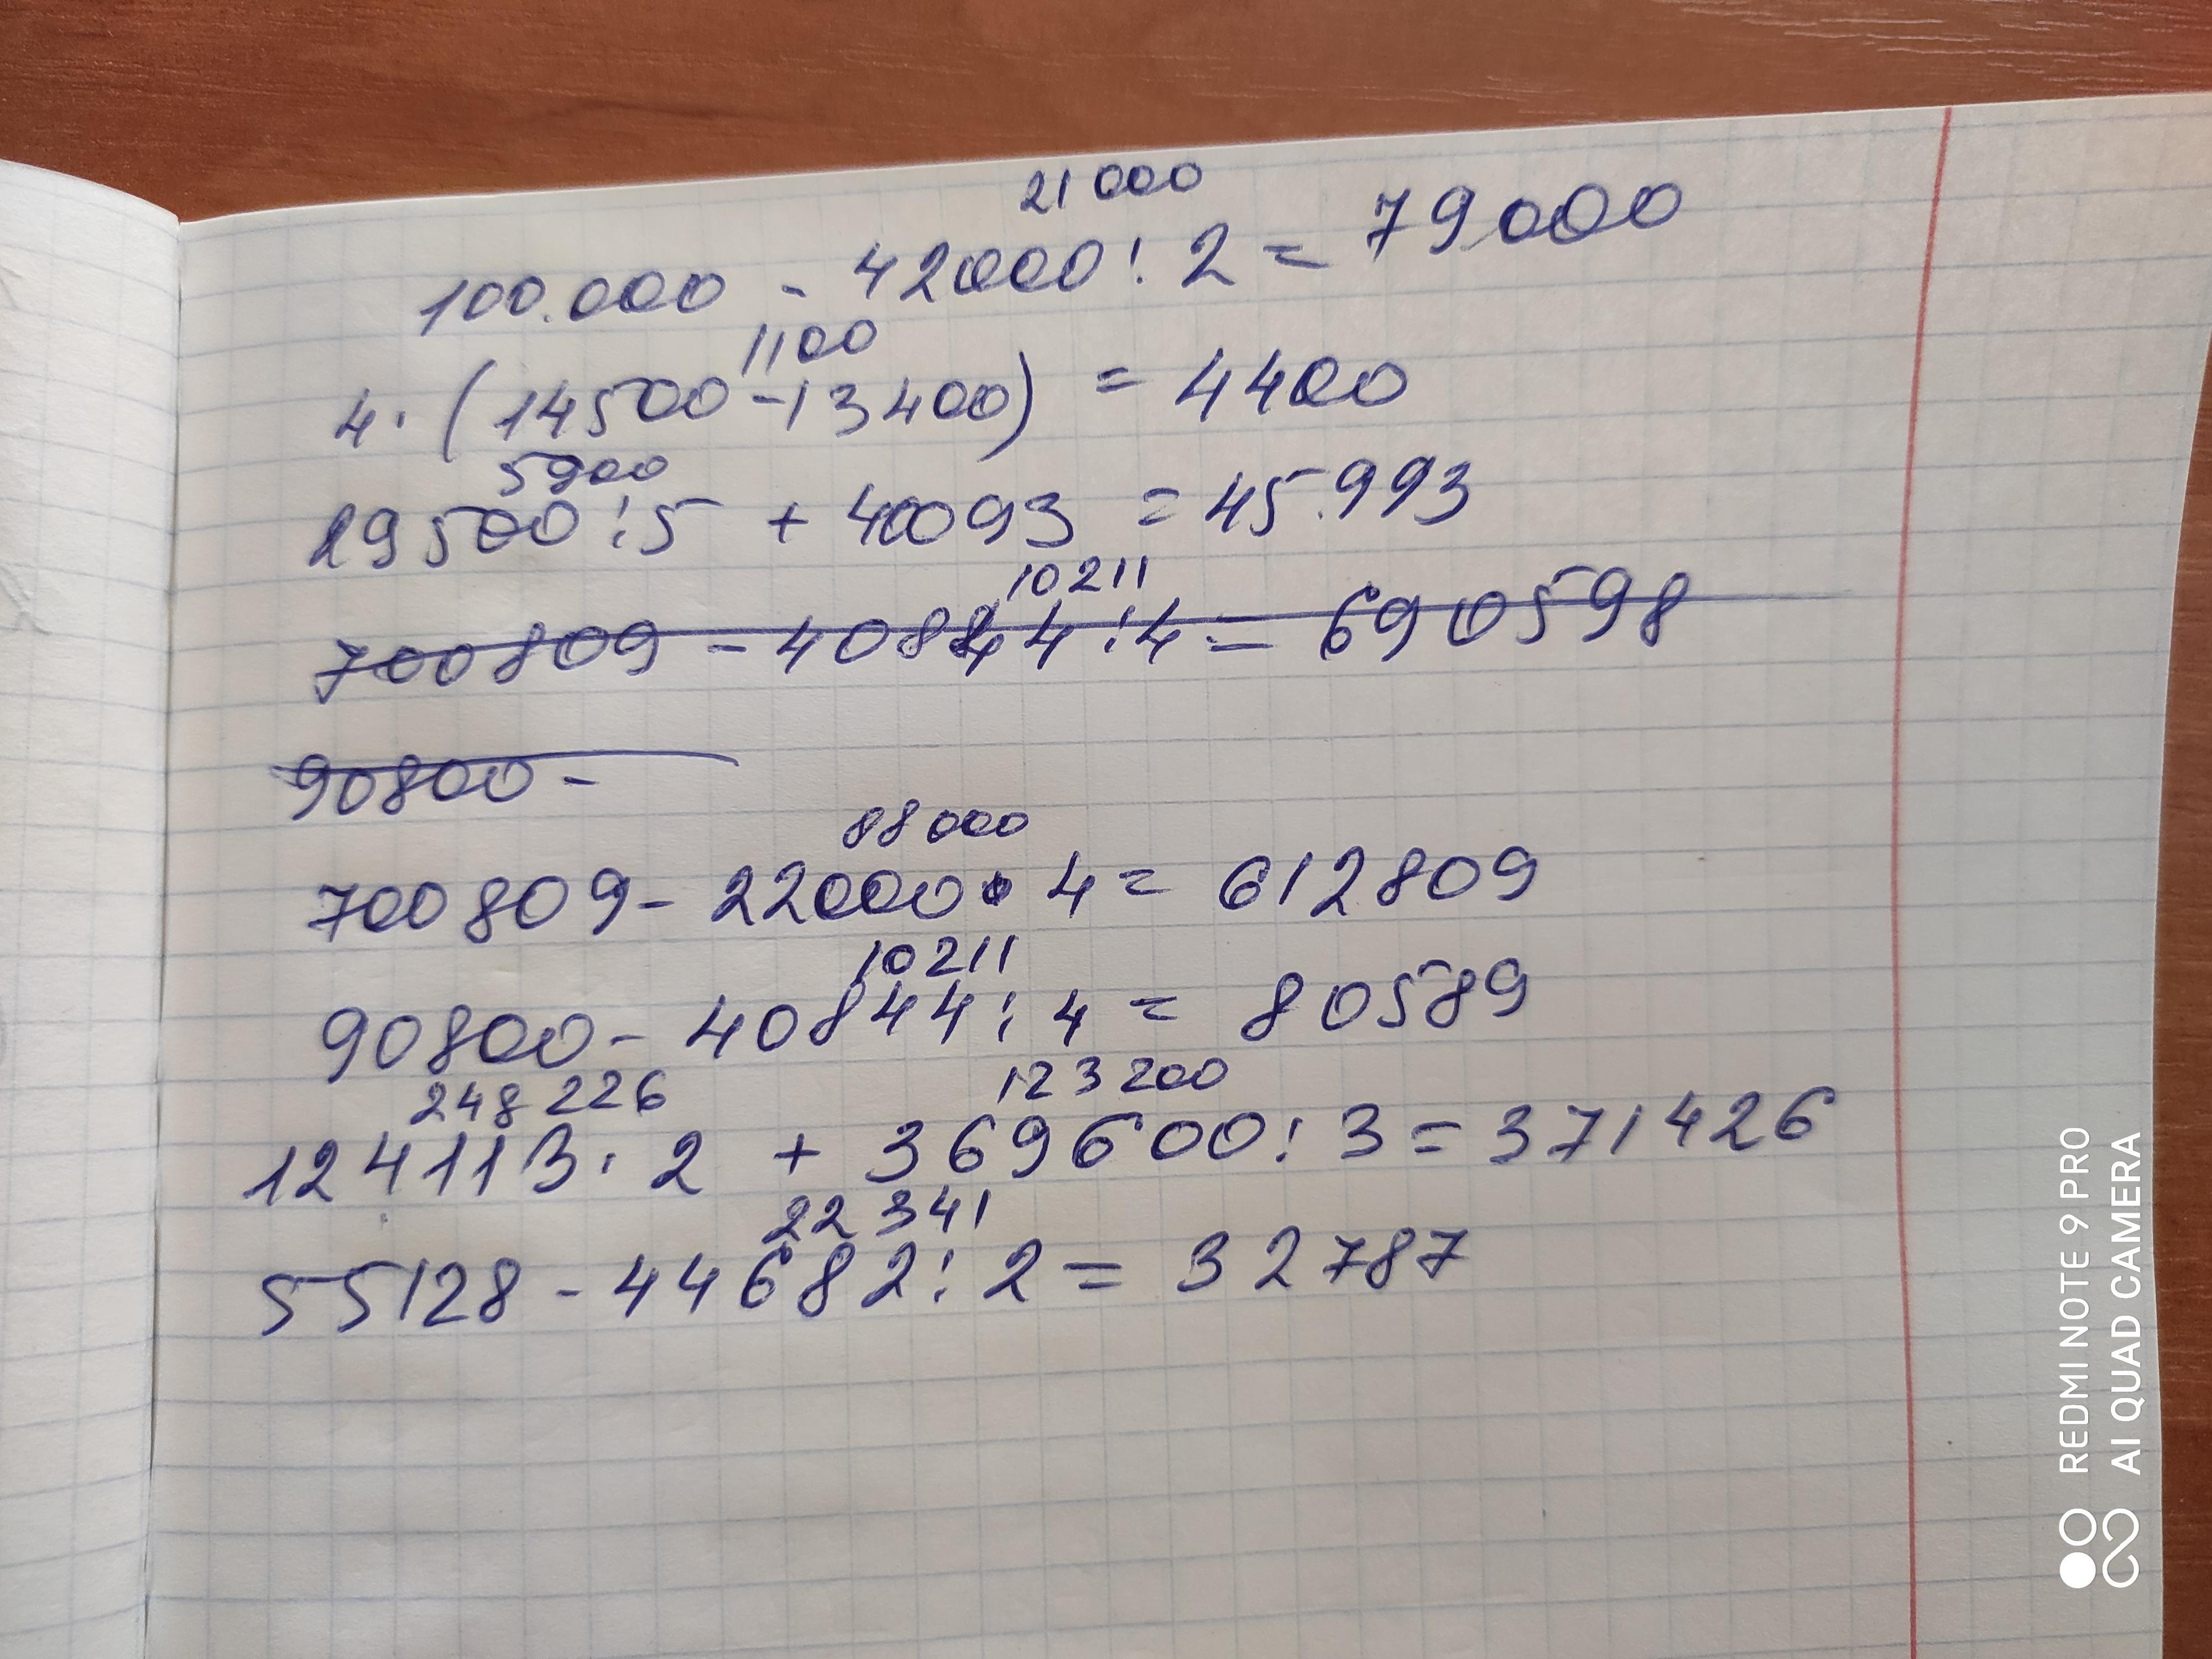 21 000
100.000 - 42000 : 2 = 79000
1100
4 · (14500 - 13400) = 4400
5900
29500 : 5 + 40093 = 45.993
10211
700809 - 40844 : 4 = 690598
90800 -
88000
700809 - 22000 · 4 = 612809
10211
90800 - 40844 : 4 = 80589
248 226 123 200
124113 · 2 + 369600 : 3 = 371426
22 341
55128 - 44682 : 2 = 32787
REDMI NOTE 9 PRO
AI QUAD CAMERA